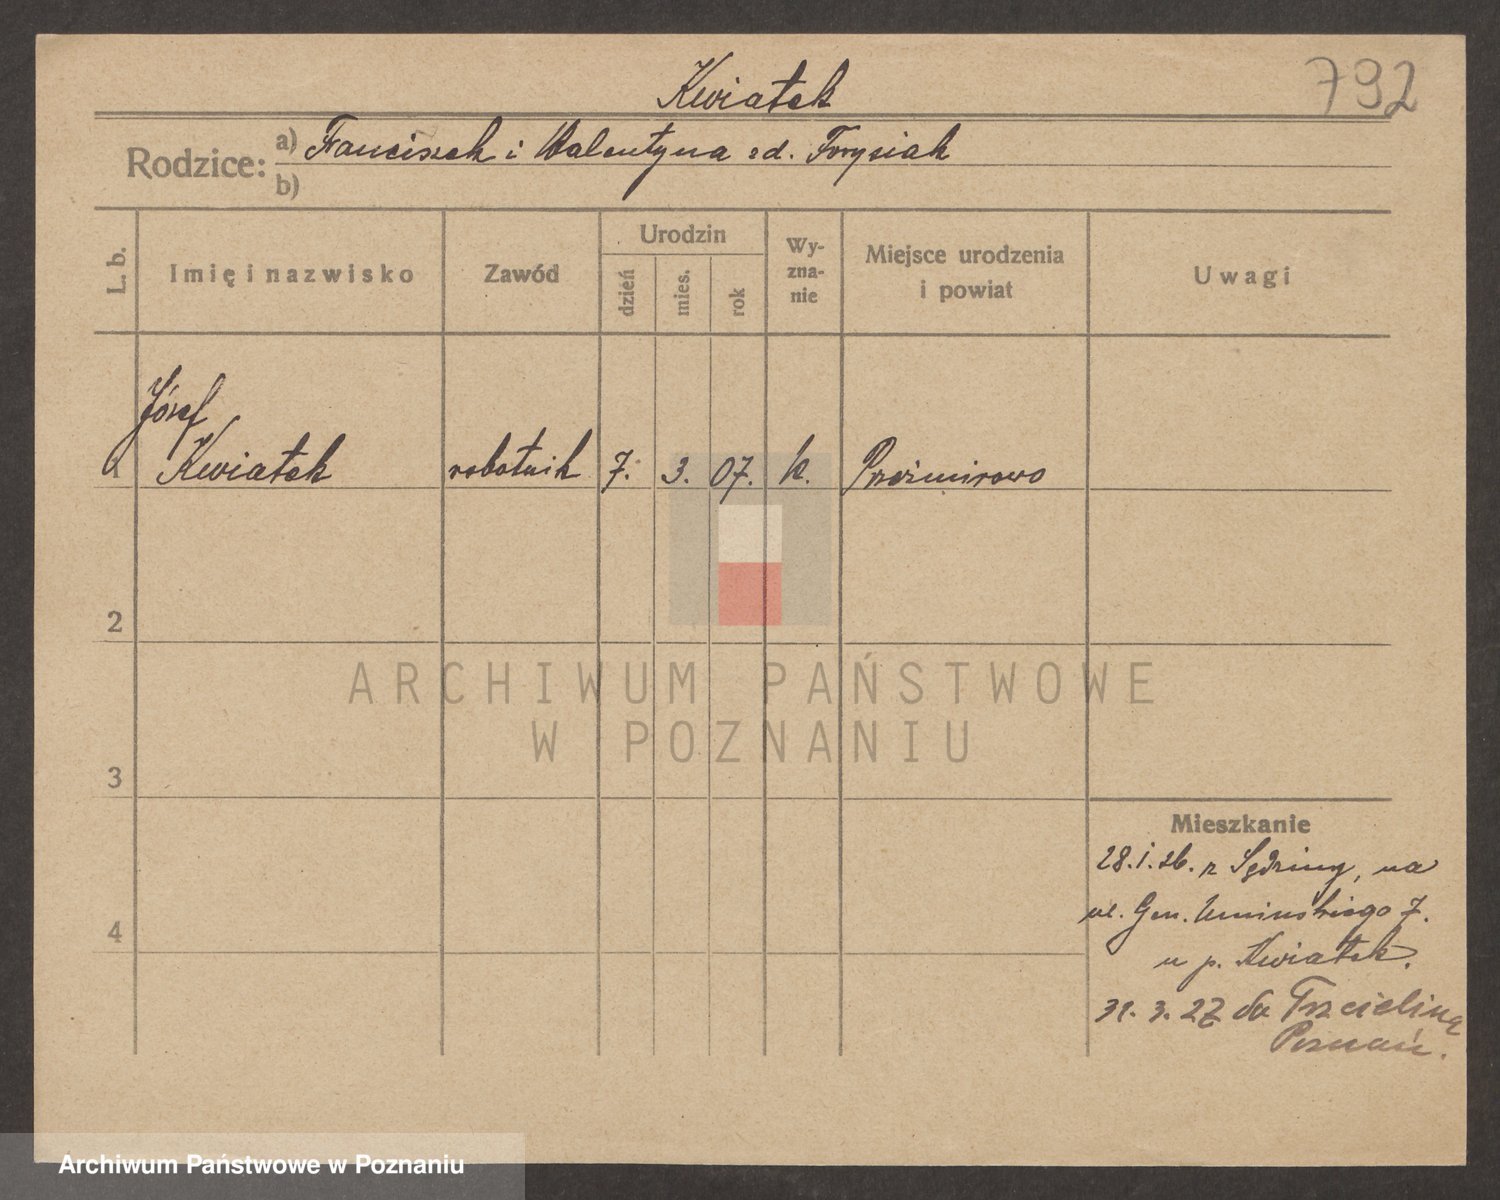 Kwiatek
792
Rodzice: a) Franciszek i Walentyna zd. Forysiak
b)
L. b.
Imię i nazwisko
Zawód
Urodzin
dzień
mies.
rok
Wy-
zna-
nie
Miejsce urodzenia
i powiat
Uwagi
Józef
1 Kwiatek robotnik 7. 3. 07. k. Przeźmirowo
2
ARCHIWUM PAŃSTWOWE
W POZNANIU
3
Mieszkanie
28.I.26. z Sędziny, na
ul. Gen. Umińskiego 7.
4
u p. Kwiatek.
31. 3. 27 do Trzcielina
Poznań.
Archiwum Państwowe w Poznaniu